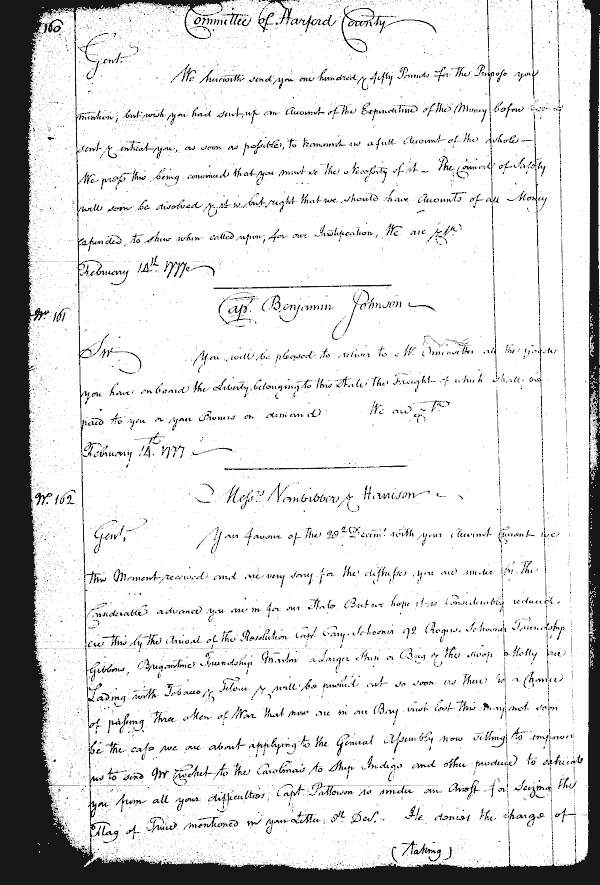 160
Committee of Harford County
Gent.
We herewith send you one hundred & fifty Pounds for the Purpose you
mention, but wish you had sent up an Account of the Expenditure of the Money before
sent & entreat you, as soon as possible, to transmit us a full Account of the whole —
We press this being convinced that you must see the Necessity of it — The Council of Safety
will soon be disolved & it is but right that we should have Accounts of all Money
expended, to shew when called upon, for our Justification, We are &ca
February 14th 1777
No. 161
Capt. Benjamin Johnson
Sir
You will be pleased to deliver to Mr. all the goods
you have on board the Liberty belonging to this State the Freight of which shall be
paid to you or your Owners on demand We are &ca
February 14th 1777
No. 162
Messrs Vanbibber & Harrison
Gent,
Your favour of the 28th Decemr. with your Account Current we
this Moment received and are very sorry for the distresses you are under by the
Considerable advance you are in for our State But we hope it is Considerably reduced
ere this by the Arrival of the Resolution Capt. Cary, Schooner Rogers, Schooner Friendship
Gibbons, Brigantine Friendship Martin a Larger Ship or Brig & the Sloop Molly are
Lading with Tobacco & Flour & will be pushed out so soon as there is a Chance
of passing three Men of War that now are in our Bay but lest this may not soon
be the case we are about applying to the General Assembly now sitting to impower
us to send Mr Crocket to the Carolina's to Ship Indigo and other produce to extricate
you from all your difficulties, Capt Patterson is under an Arrest for Seizing the
Flag of Truce mentioned in your Letter, Decr. He denies the charge of
(taking)